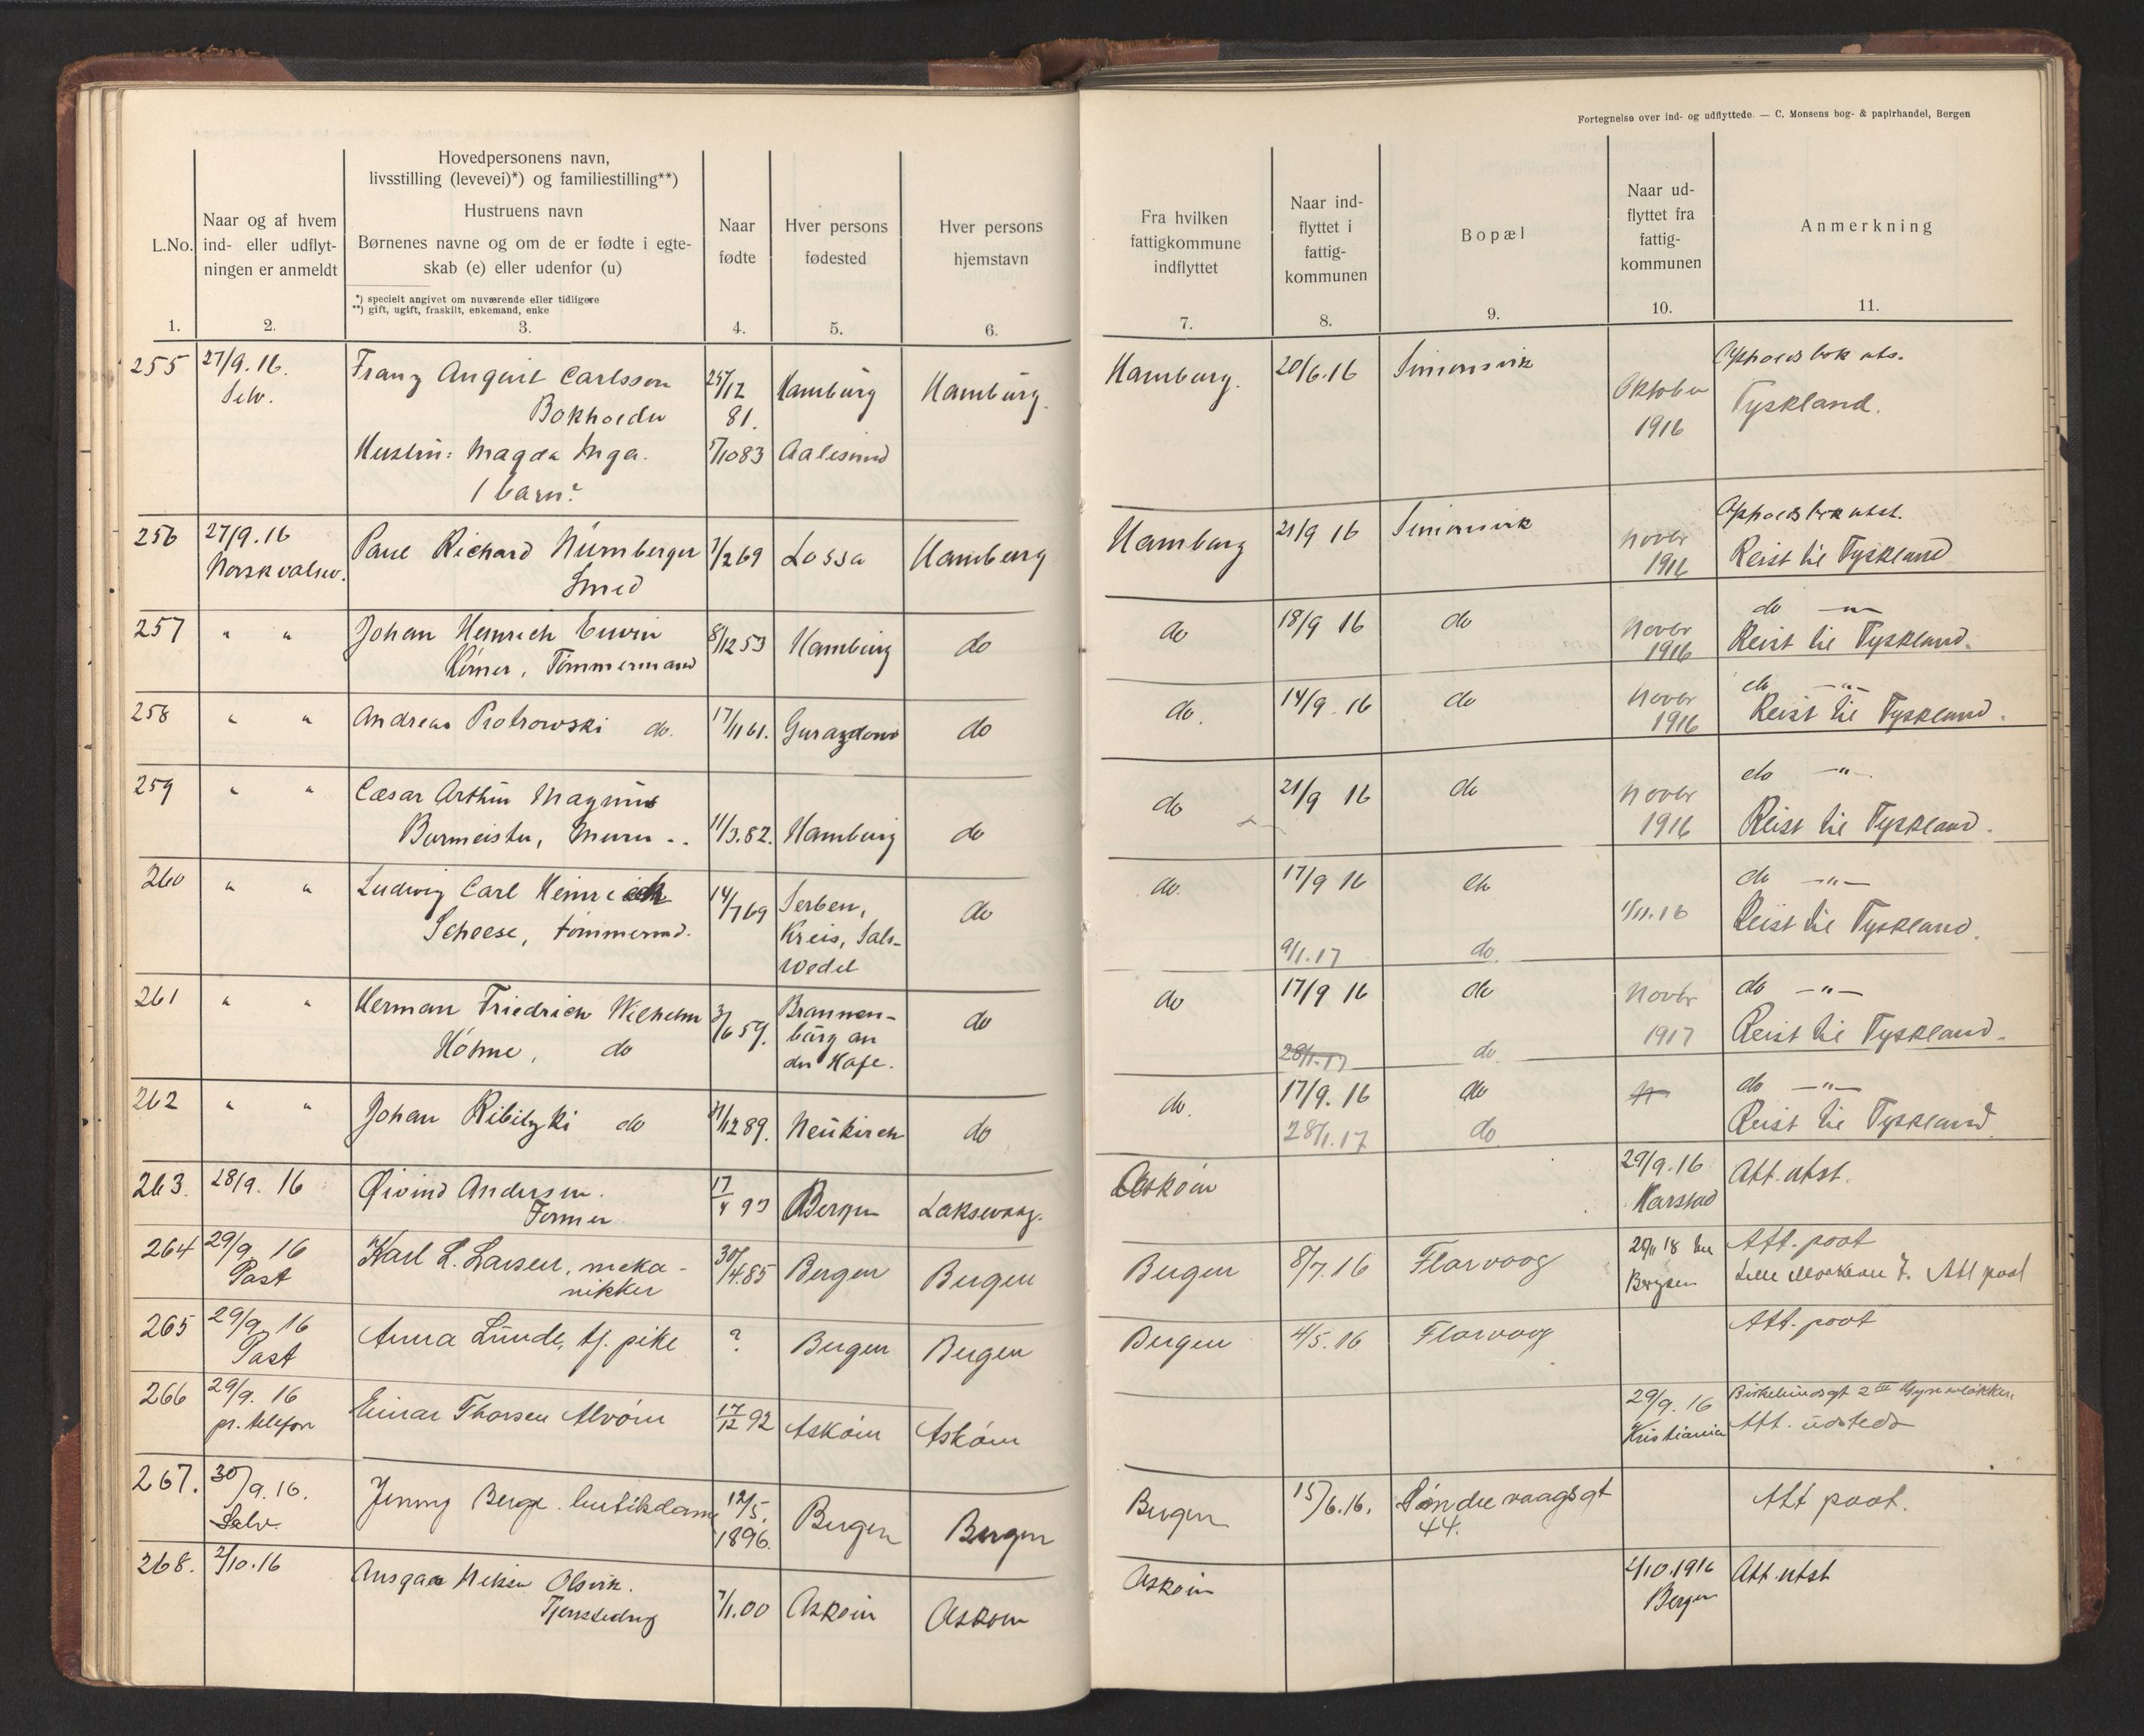 Fortegnelse over ind- og udflyttede. — C. Monsens bog- & papirhandel, Bergen
L.No.
1.
Naar og af hvem
ind- eller udflyt-
ningen er anmeldt
2.
Hovedpersonens navn,
livsstilling (levevei)*) og familiestilling**)
Hustruens navn
Børnenes navne og om de er fødte i egte-
skab (e) eller udenfor (u)
*) specielt angivet om nuværende eller tidligere
**) gift, ugift, fraskilt, enkemand, enke
3.
Naar
fødte
4.
Hver persons
fødested
5.
Hver persons
hjemstavn
6.
Fra hvilken
fattigkommune
indflyttet
7.
Naar ind-
flyttet i
fattig-
kommunen
8.
Bopæl
9.
Naar ud-
flyttet fra
fattig-
kommunen
10.
Anmerkning
11.
255 27/9.16. Franz August Carlsson Hamburg Hamburg. Hamburg. 20/6.16 Simonsvik Opholdsbok uts.
Selv. Bokholder 81. Oktober Tyskland.
1916
Hustru: Magda Inga. 5/10 83 Aalesund
1 barn?
256 27/9.16 Paul Richard Nürnberger 7/2 69 Lossa Hamburg Hamburg 21/9 16 Simonsvik Novbr Opholdsbok utst.
Norsk valsev. Smed 1916 Reist til Tyskland
257 " " Johan Heinrich Erwin 8/12 53 Hamburg do do 18/9 16 do Novbr do —"—
Körner, Tømmermand 1916 Reist til Tyskland.
258 " " Andreas Piotrowski do. 17/11 61. do do. 14/9 16 do Novbr do —"—
1916 Reist til Tyskland.
259 " " Cæsar Arthur Magnus do 21/9 16 do Novbr do —"—
Burmeister, Murer 11/3.82. Hamburg do 1916 Reist til Tyskland.
260 " " Ludwig Carl Heinrich 14/7 69 Serben, do do. 17/9 16 do 1/11.16 do —"—
Scheese, tømmermd. Kreis, Sals- Reist til Tyskland.
wedel 9/1.17 do.
261 " " Herman Friedrich Wilhelm 3/6 59. Brannen- do do 17/9 16 do Novbr do —"—
Höhne, do burg an 1917 Reist til Tyskland.
der Hafe. 28/1.17 do.
262 " " Johan Ribitzki do 21/12 89. Neukirch do do. 17/9. 16 do do —"—
28/1.17 do Reist til Tyskland.
263. 28/9. 16 Øivind Andersen. 17/4 93 Bergen Laksevaag. Askøin 29/9.16 Att. utst.
Former Harstad
264 29/9. 16 Karl L. Larsen, meka- 30/4.85 Bergen Bergen Bergen 8/7.16 Florvaag 29/11 18 til Att. paat
Post nikker Bergen Lille Markevei 7. Att paat
265 29/9. 16 Anna Lunde, tj. pike ? Bergen Bergen Bergen 4/5.16 Florvaag Att. paat
Post
266 29/9. 16 Einar Thorsen Alvøen 17/12 92 Askøin Askøin 29/9. 16 Birkelundsgt 2
pr. telefon Kristiania Att. udstedt
267. 30/9.16. Jenny Berge. butikdame 12/5. Bergen Bergen Bergen 15/6.16. Søndre vaagsgt Att paat.
Selv. 1896. 44.
268. 2/10.16 Ansgar Olsvik. 7/1.00 Askøin Askøin Askøin 2/10.1916 Att utst
Tjenstedreng Bergen